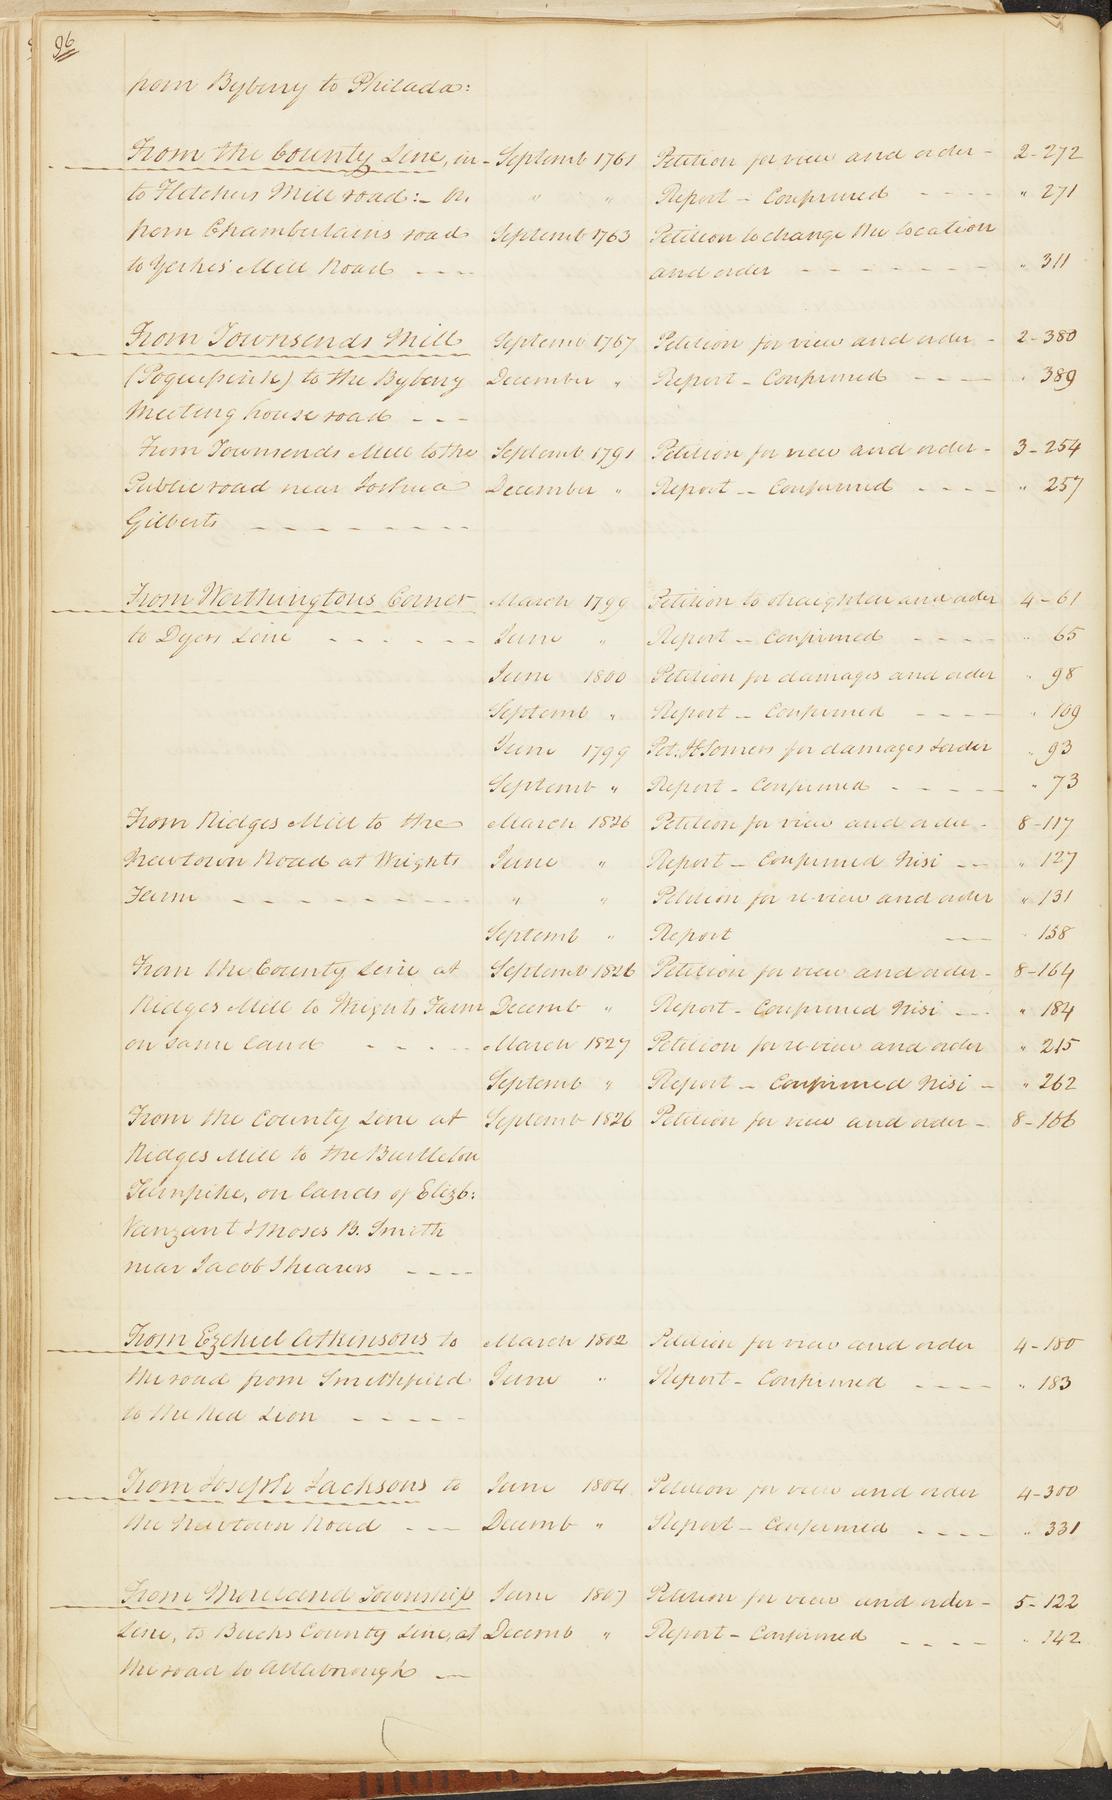 96
from Byberry to Philada:
From the County Line, in- Septemb 1761 Petition for view and order - 2-272
to Fletchers Mill road:- Or, " " Report - Confirmed - - - - " 271
from Chamberlains road Septemb 1763 Petition to change the location
to Yerkes' Mill Road - - - - and order - - - - - - - " 311
From Townsends Mill Septemb 1767 Petition for view and order - 2-380
(Poquessink) to the Byberry December " Report - Confirmed - - - - " 389
Meeting house road - - -
From Townsends Mill to the Septemb 1791 Petition for view and order - 3-254
Public road near Joshua December " Report - Confirmed - - - - " 257
Gilberts - - - - - - - -
From Worthingtons Corner March 1799 Petition to straighten and order 4-61
to Dyers Line - - - - - - June " Report - Confirmed - - - - " 65
June 1800 Petition for damages and order " 98
Septemb " Report - Confirmed - - - - " 109
June 1799 Pet. Somers for damages & order " 93
Septemb " Report - Confirmed - - - - - " 73
From Ridges Mill to the March 1826 Petition for view and order - 8-117
Newtown Road at Wrights June " Report - Confirmed Nisi - - " 127
Farm - - - - - - - - - " " Petition for re-view and order " 131
Septemb " Report - - " 158
From the County Line at Septemb 1826 Petition for view and order - 8-164
Ridges Mill to Wrights Farm Decemb " Report - Confirmed Nisi - - - " 184
on same land - - - - March 1827 Petition for re-view and order " 215
Septemb " Report - Confirmed Nisi - " 262
From the County Line at Septemb 1826 Petition for view and order - 8-166
Ridges Mill to the Bustleton
Turnpike, on lands of Elizb:
Vanzant & Moses B. Smith
near Jacob Shearers - - - -
From Ezekiel Atkinsons to March 1802 Petition for view and order 4-180
the road from Smithfield June " Report - Confirmed - - - - " 183
to the Red Lion - - - - -
From Joseph Jacksons to June 1804 Petition for view and order 4-300
the Newtown Road - - - Decemb " Report - Confirmed - - - - " 331
From Moreland Township June 1807 Petition for view and order - 5-122
Line, to Bucks County Line, at Decemb " Report - Confirmed - - - - " 142
the road to Attleborough - -